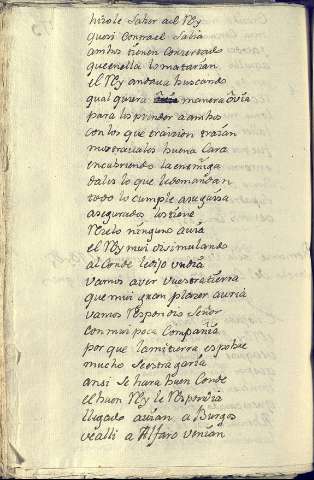 hizole saber al Rey
quien con trael salia
ambos tienen concertado
quenella lo matarian
el Rey andaua buscando
qual quiera manera o via
para los prender a ambos
con los que traicion traian
mostrauales buena cara
encubriendo la enemiga
dales lo que le demandan
todo lo cumple a su guisa
asegurados los tiene
Recelo ninguno auia
el Rey mui disimulando
al Conde le dijo un dia
vamos a ver vuestra tierra
que mui gran plazer auria
vamos Respondio Señor
con mui poca Compañia
por que la mi tierra es pobre
mucho se estragaria
ansi se hara buen Conde
el buen Rey le Respondia
llegado auian a Burgos
de alli a Alfaro venian